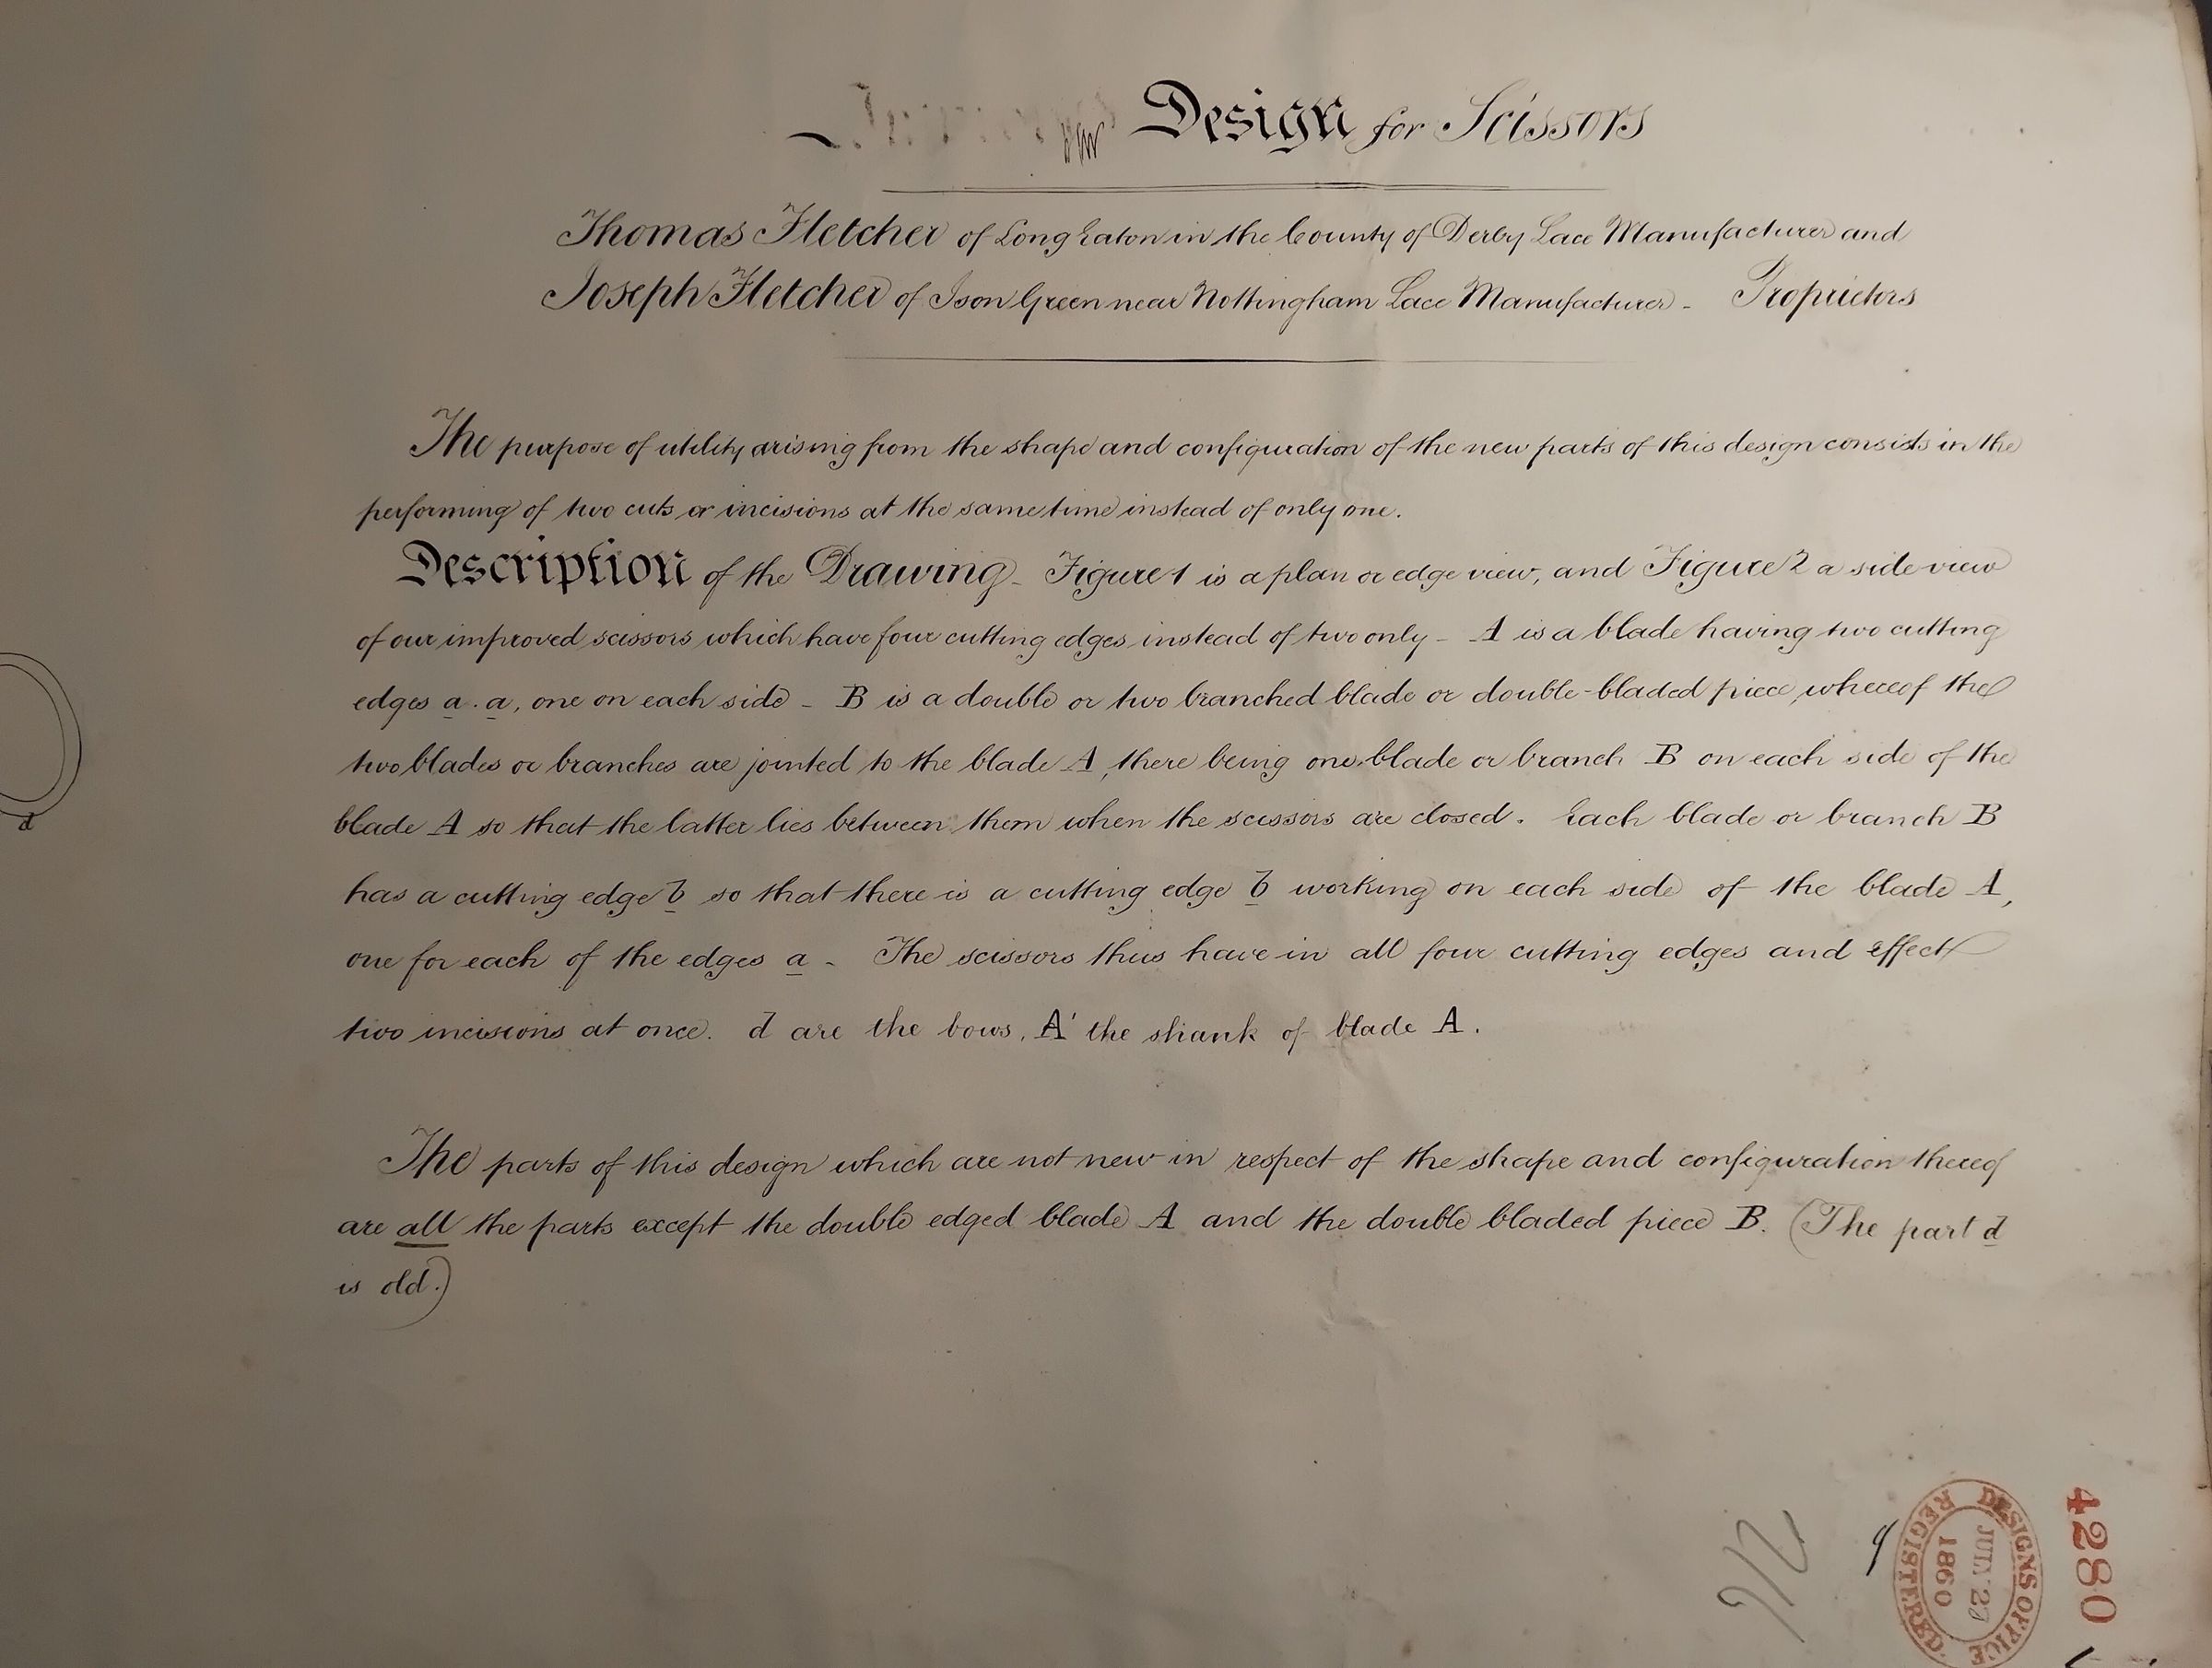 Design for Scissors
Thomas Fletcher of Long Eaton in the County of Derby Lace Manufacturer and
Joseph Fletcher of Ison Green near Nottingham Lace Manufacturer - Proprietors
The purpose of utility arising from the shape and configuration of the new parts of this design consists in the
performing of two cuts or incisions at the same time instead of only one.
Description of the Drawing - Figure 1 is a plan or edge view, and Figure 2 a side view
of our improved scissors which have four cutting edges instead of two only - A is a blade having two cutting
edges a . a, one on each side - B is a double or two branched blade or double-bladed piece, whereof the
two blades or branches are jointed to the blade A, there being one blade or branch B on each side of the
blade A so that the latter lies between them when the scissors are closed. Each blade or branch B
has a cutting edge b so that there is a cutting edge b working on each side of the blade A,
one for each of the edges a - The scissors thus have in all four cutting edges and effect
two incisions at once. d are the bows, A' the shank of blade A.
The parts of this design which are not new in respect of the shape and configuration thereof
are all the parts except the double edged blade A and the double bladed piece B. (The part d
is old.)
d
DESIGNS OFFICE
REGISTERED
1860
4280